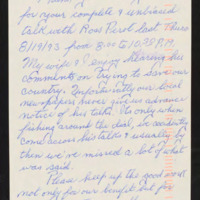 for your complete & unbiased
talk with Ross Perot last Thurs
8/19/93 from 8:00 to 10:30 P.M.
My wife & I enjoy hearing his
comments on trying to save our
country. Unfortunately our local
newspapers never give us advance
notice of his talks. Its only when
fishing around the dial, we accidently
come across his talks & usually by
then we've missed a lot of what
was said.
Please keep up the good work
not only for our benefit but for